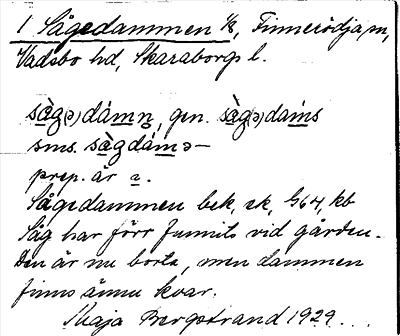 1 Sågedammen 1/8, Finnerödja sn,
Vadsbo hd, Skaraborgs l.
sàg(ə)dámn̥, gen. sàg(ə)dam̀s
sms. sàgdámə–
prep. är a.
Sågedammen bek, ek, G64, kb
Såg har förr funnits vid gården.
Den är nu borta, men dammen
finns ännu kvar.
Maja Bergstrand 1929